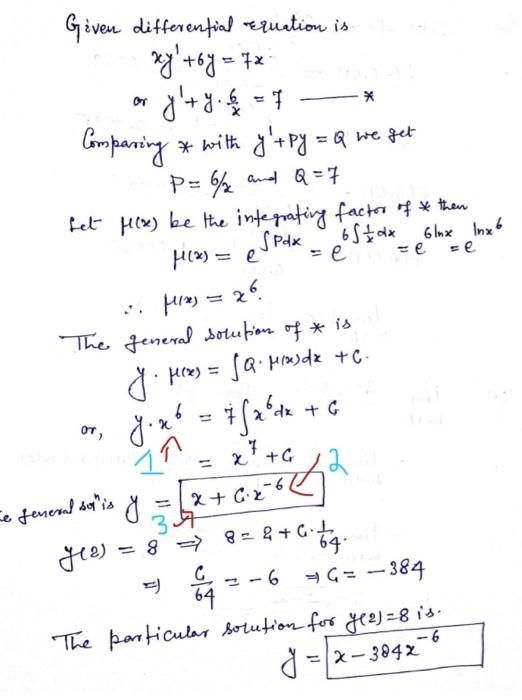 Given differential equation is
xy' + 6y = 7x
or y' + y · 6/x = 7 ——— *
Comparing * with y' + Py = Q we get
P = 6/x and Q = 7
Let μ(x) be the integrating factor of * then
μ(x) = e^∫Pdx = e^6∫1/x dx = e^6lnx = e^lnx^6
∴ μ(x) = x^6.
The general solution of * is
y · μ(x) = ∫Q · μ(x)dx + C.
or, y · x^6 = 7∫x^6 dx + C
1 = x^7 + C 2
general solⁿ is y = x + C · x^-6
3
y(2) = 8 ⇒ 8 = 2 + C · 1/64.
⇒ C/64 = -6 ⇒ C = -384
The particular solution for y(2) = 8 is.
y = x - 384x^-6